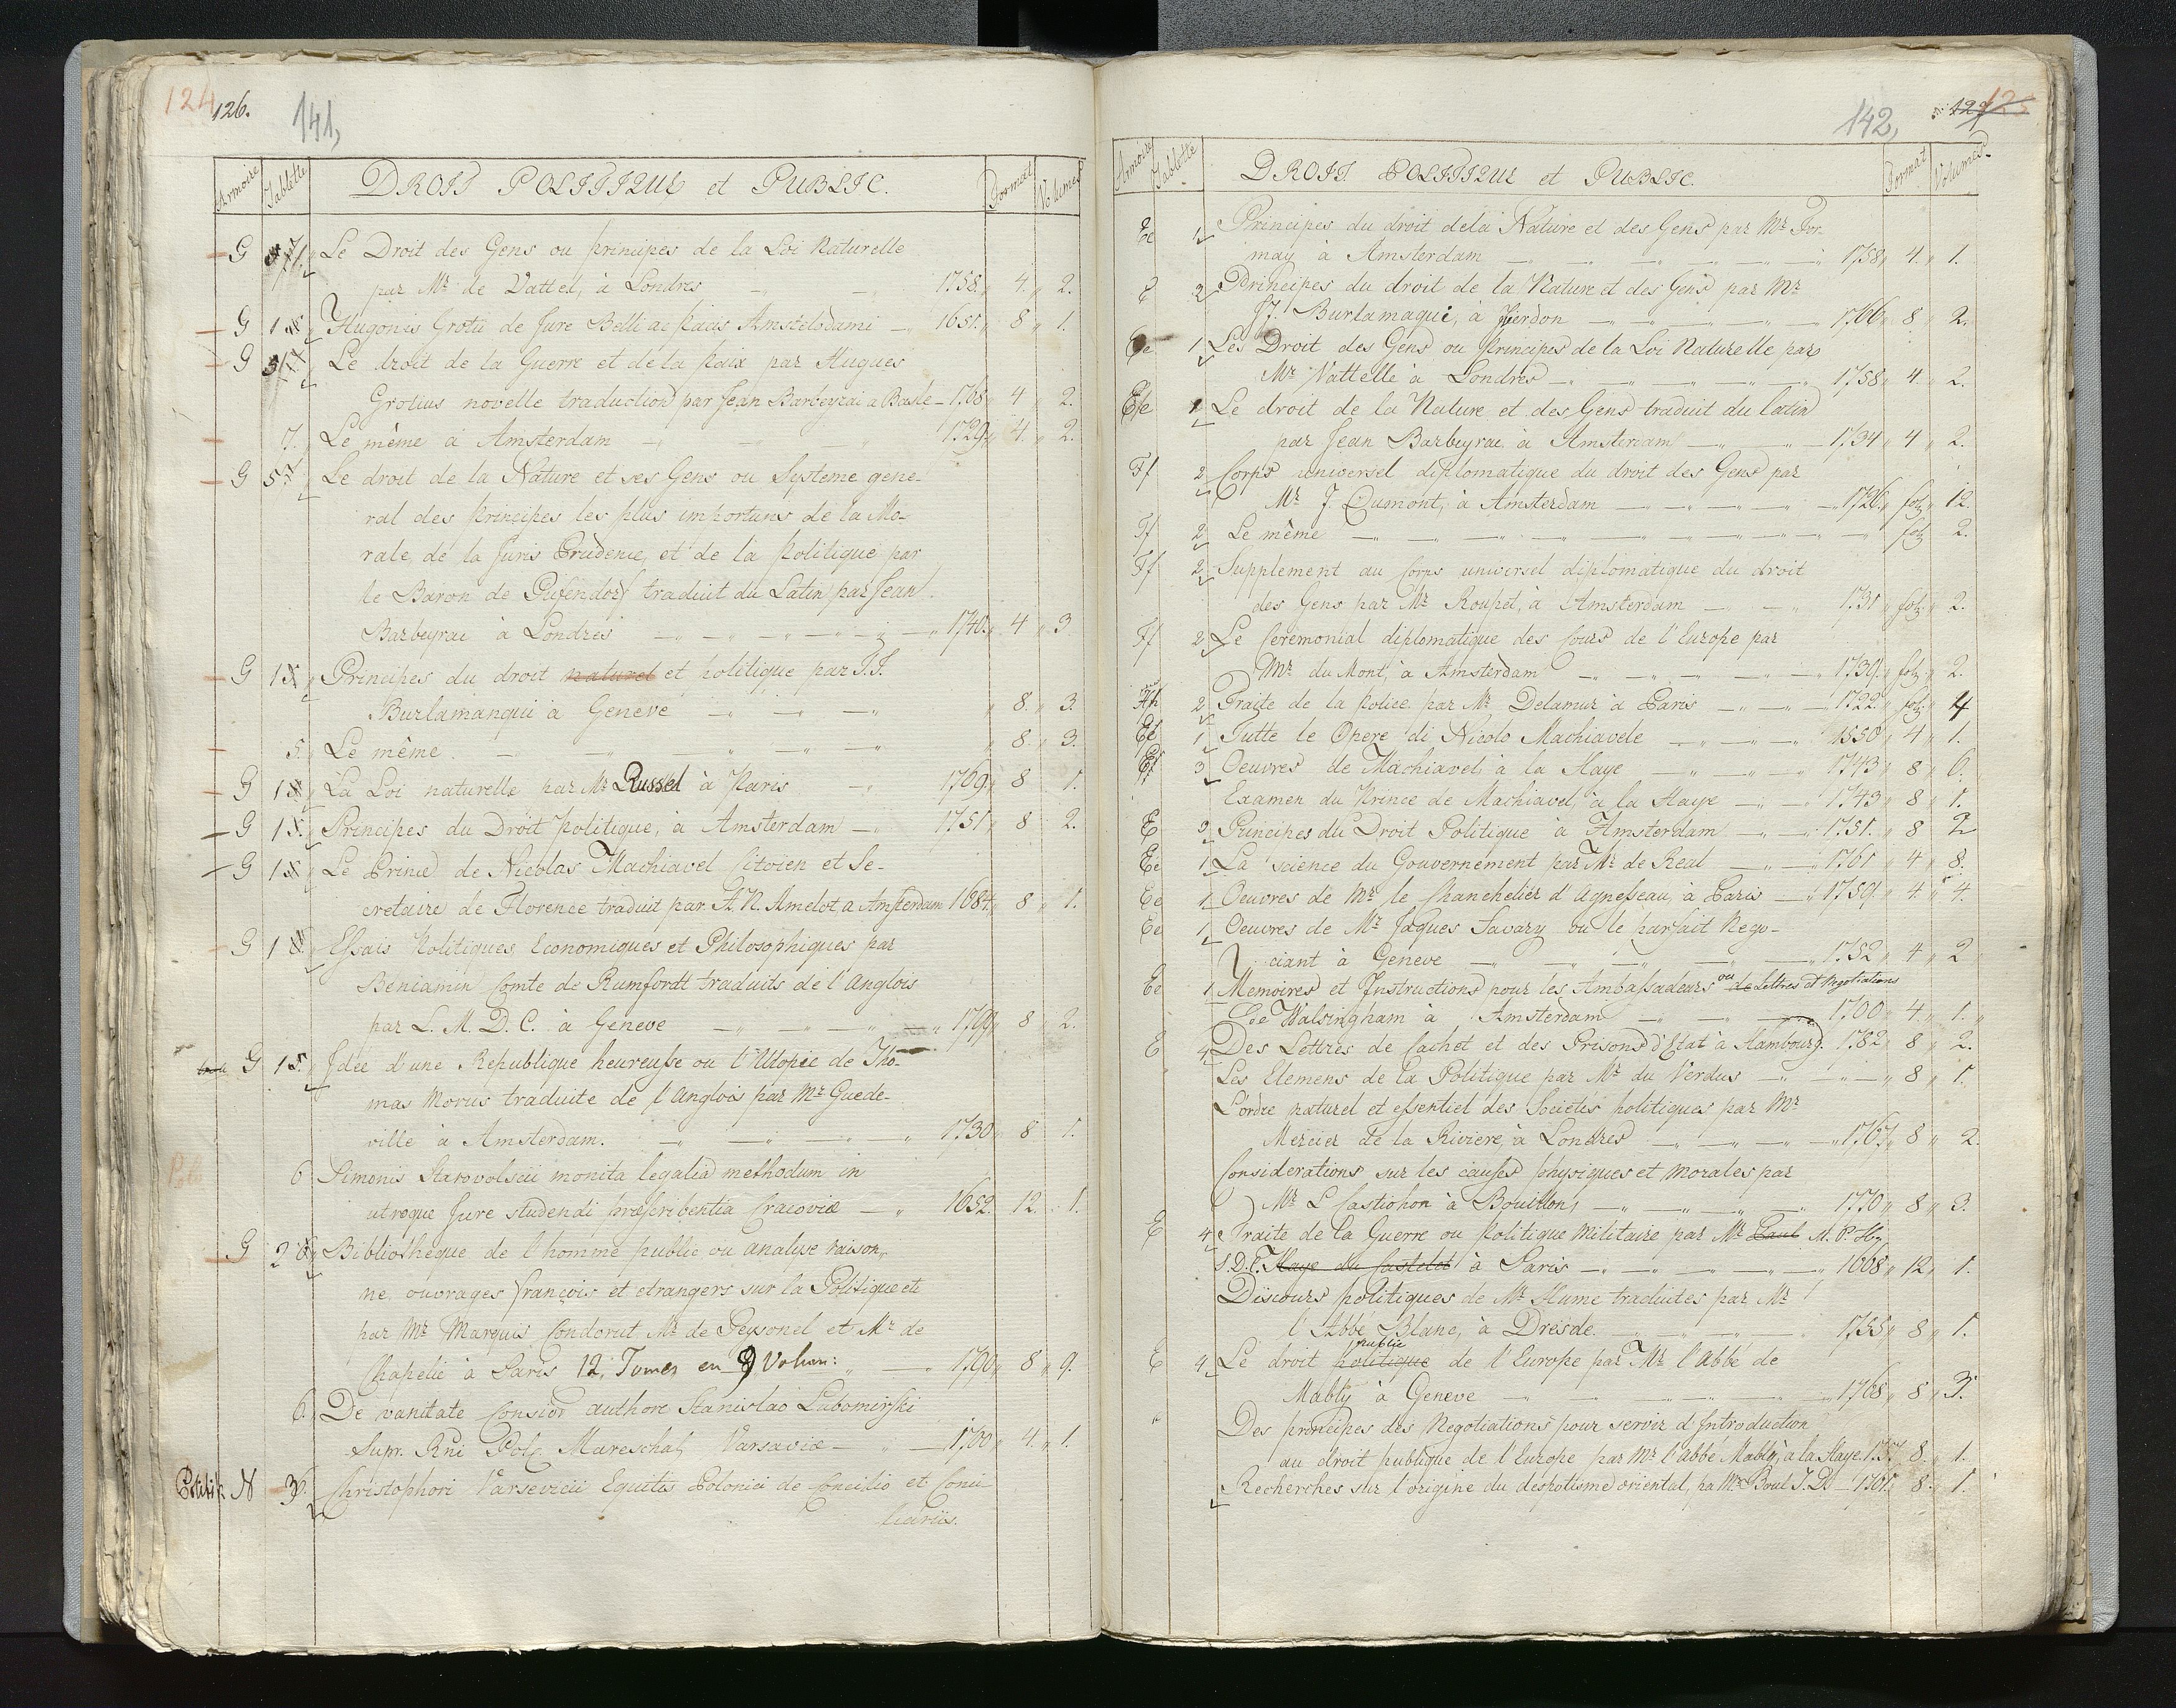 124 126. 141,
Armoire Tablette DROIT POLITIQUE et PUBLIC. Format Volumes
G 1 Le Droit des Gens ou principes de la Loi Naturelle
par Mr de Vattel, à Londres 1758. 4. 2.
G 1 Hugonis Grotii de Jure Belli ac pacis Amstelodami 1651. 8 1.
G Le droit de la Guerre et de la paix par Hugues
Grotius novelle traduction par Jean Barbeyrac a Basle 1768 4 2.
7. Le même à Amsterdam 1729. 4. 2.
G 5 Le droit de la Nature et ses Gens ou Systeme gene-
ral des principes les plus importans de la Mo-
rale, de la Juris Prudence, et de la politique par
le Baron de Pufendorf traduit du Latin par Jean
Barbeyrac à Londres 1740. 4 3
G 1 Principes du droit naturel et politique par J. J.
Burlamanqui à Geneve 8. 3.
5. Le même 8. 3.
G 1 La Loi naturelle par Mr Russel à Paris 1769. 8 1.
G 1 5. Principes du Droit politique, à Amsterdam 1751 8 2.
G 1 Le Prince de Nicolas Machiavel Citoien et Se-
cretaire de Florence traduit par A. N. Amelot a Amsterdam 1684. 8 1.
G 1 Essais Politiques Economiques et Philosophiques par
Beniamin Comte de Rumfordt traduits de l'Anglois
par L. M. D. C. à Geneve 1799 8 2.
G 1 5. Idée d'une Republique heureuse ou l'Utopie de Tho-
mas Morus traduite de l'Anglois par Mr Guede-
ville à Amsterdam. 1730 8 1.
6 Simonis Starovolscii monita legalia methodum in
utroque Jure studendi præscribentia Cracoviæ 1652. 12. 1.
G 2 Bibliotheque de l'homme public ou analyse raison-
ne, ouvrages françois et etrangers sur la Politique etc
par Mr Marquis Condorcet Mr de Peysonel et Mr de
Chapelie à Paris 12. Tomes en 9 Volum: 1790 8 9.
6. De vanitate Consior authore Stanislao Lubomirski
Supr. Rni Pol. Mareschal, Varsaviæ 1700 4. 1.
Politik N 3 Christophori Varsevicii Equitis Polonici de Concilio et Consi-
liariis.
142, 125
Armoire Tablette DROIT POLITIQUE et PUBLIC. Format Volumes
Ee 1 Principes du droit de la Nature et des Gens par Mr For-
may à Amsterdam 1758 4. 1.
E 3 Principes du droit de la Nature et des Gens par Mr
J. J. Burlamaqui, à Yverdon 1766 8 2.
Ee 1 Les Droit des Gens ou Principes de la Loi Naturelle par
Mr Vattelle à Londres 1758 4. 2.
Ee 1 Le droit de la Nature et des Gens traduit du latin
par Jean Barbeyrac à Amsterdam 1734 4 2.
Ff 2 Corps universel diplomatique du droit des Gens par
Mr J. Dumont, à Amsterdam 1726. fol. 12.
Ff 2 Le même fol. 2.
Ff 2 Supplement au Corps universel diplomatique du droit
des Gens par Mr Roupet, à Amsterdam 1731 fol. 2.
Ff 2 Le Ceremonial diplomatique des Cours de l'Europe par
Mr du Mont, à Amsterdam 1739. fol. 2.
Hh 2 Traite de la police par Mr Delamur à Paris 1722 fol. 4
Ee 1 Tutte le Opere di Nicolo Machiavele 1550 4 1.
3 Oeuvres de Machiavel, à la Haye 1743 8 6.
Examen du Prince de Machiavel, à la Haye 1743 8 1.
E 3 Principes du Droit Politique à Amsterdam 1751. 8 2
Ee 1 La science du Gouvernement par Mr de Real 1761 4 8.
Ee 1 Oeuvres de Mr le Chanchelier d'Agnesseau, à Paris 1759. 4. 4.
Ee 1 Oeuvres de Mr Jaques Savary ou le parfait Nego-
ciant à Geneve 1752 4 2
Ee 1 Memoires et Instructions pour les Ambassadeurs ou de Lettres et Negotiations
De Walsingham à Amsterdam 1700 4 1.
E 4 Des Lettres de Cachet et des Prisons d'Etat à Hambourg. 1782 8 2.
Les Elemens de la Politique par Mr du Verdus 8 1.
L'ordre naturel et essentiel des Societés politiques par Mr
Mercier de la Riviere, à Londres 1767 8 2.
Considerations sur les causes physiques et morales par
Mr L Castiohon à Bouillon, 1770 8 3.
E 4 Traite de la Guerre ou politique militaire par Mr Paul M. P. H.
S. D. C. Haye du Castelet à Paris 1668 12 1.
Discours politiques de Mr Hume traduites par Mr
l'Abbé Blanc, à Dresde. 1755 8 1.
E 4 Le droit politique public de l'Europe par Mr l'Abbé de
Mably à Geneve 1768 8 3.
Des principes des Negotiations pour servir d'Introduction
au droit publique de l'Europe par Mr l'Abbé Mably, à la Haye 1757 8. 1.
Recherches sur l'origine du despotisme oriental, pa Mr Boul J. D. 1761. 8. 1.